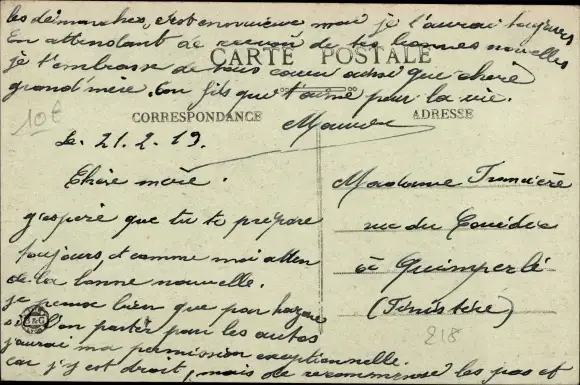 les démarches, c'est ennuieuse moi je t'aurai toujours
En attendant de recevoir de tes bonnes nouvelles
je t'embrasse de tous coeur ainsi que chère
grand'mère. Ton fils que t'aime pour la vie.
Maurice
CARTE POSTALE
10€
CORRESPONDANCE
ADRESSE
Le. 21. 2. 19.
Chère mère.
j'espère que tu te prépare
toujours, et comme moi atten
de la bonne nouvelle.
je pense bien que par hazard
si l'on partir par les autos
j'aurai ma permission exceptionnelle.
car j'y est droit, mais de recommense les pas et
Madame
rue du
à Quimperlé
(Finistère)
218
B&G